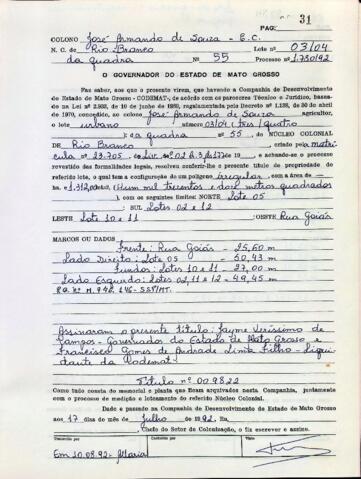 PAG. Nº 31
COLONO José Armando de Souza - E.C.
N. C. de Rio Branco Lote nº 03/04
da quadra Nº 55 Processo nº 1.750/92
O GOVERNADOR DO ESTADO DE MATO GROSSO
Faz saber, aos que o presente virem, que havendo a Companhia de Desenvolvimento
do Estado de Mato Grosso - CODEMAT-, de acôrdo com os pareceres Técnico e Jurídico, baseados
na Lei nº 2.933, de 19 de junho de 1969, regulamentada pelo Decreto nº 1.138, de 30 de abril
de 1970, concedido, ao colono José Armando de Souza agricultor,
o lote urbano número 03/04 (três/quatro)
da quadra nº 55, do NÚCLEO COLONIAL
DE Rio Branco, criado pela matrí-
cula nº 23.705 - Liv. nº 02 de 19 e achando-se o processo
revestido das formalidades legais, resolveu conferir-lhe o presente título de propriedade do
referido lote, o qual tem a configuração de um polígono irregular com a área de -
ha. 1.312,00m2 (Hum mil trezentos e doze metros quadrados
), com os seguintes limites: NORTE Lote 05
SUL Lotes 02 e 12
LESTE Lote 10 e 11 OESTE Rua Goiás
MARCOS OU DADOS
Frente: Rua Goiás - 25,60 m
Lado Direito: Lote 05 - 50,43 m
Fundos: Lotes 10 e 11 - 27,00 m
Lado Esquerdo: Lotes 02, 11 e 12 - 49,45 m
Assinaram o presente título: Jayme Veríssimo de
Campos - Governador do Estado de Mato Grosso e
Francisco Gomes de Andrade Lima Filho - Liqui-
dante da Codemat.
Título nº 009822
Como tudo consta do memorial e planta que ficam arquivados nesta Companhia, juntamente
com o processo de medição e loteamento do referido Núcleo Colonial.
Dado e passado na Companhia de Desenvolvimento do Estado de Mato Grosso
aos 17 dias do mês de Julho de 1992. Eu,
, Chefe do Setor de Colonização, o fiz escrever e assino.
Em 10.08.92-
Visto